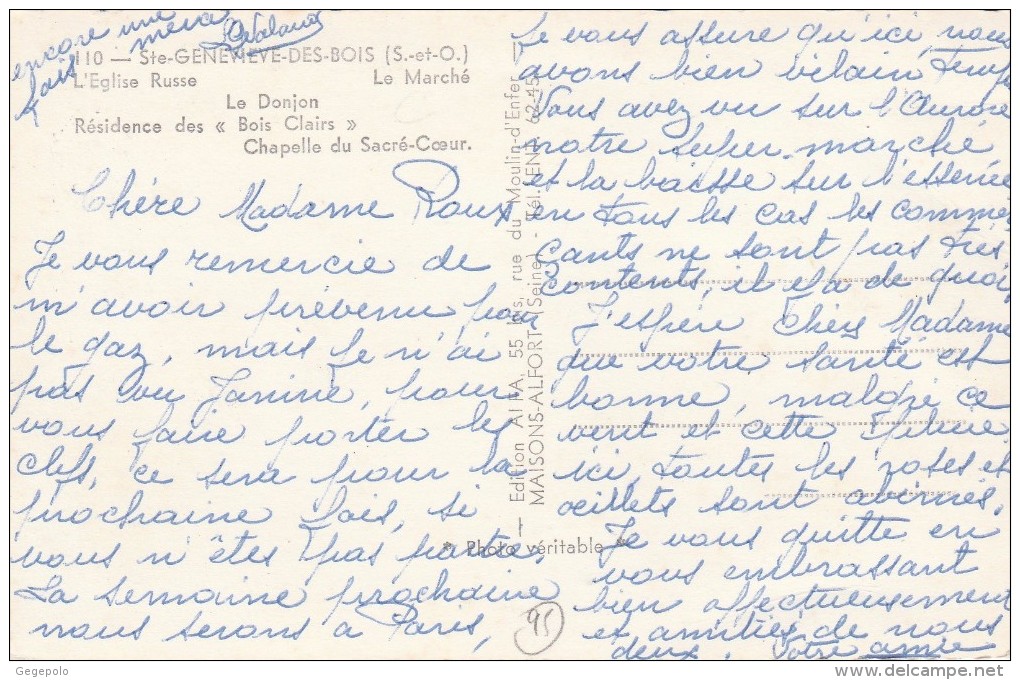 110 — Ste-GENEVIÈVE-DES-BOIS (S.-et-O.)
L'Eglise Russe Le Marché
Le Donjon
Résidence des « Bois Clairs »
Chapelle du Sacré-Cœur.
Chère Madame Roux,
Je vous remercie de
m'avoir prévenu pour
le gaz, mais je n'ai
pas vu Janine, pour
vous faire porter les
clefs, ce sera pour la
prochaine fois, si
vous n'êtes pas partie.
La semaine prochaine
nous serons à Paris,
— Edition ALFA, 55 bis, rue du Moulin-d'Enfer
MAISONS-ALFORT (Seine) - Tél. ENT. 62-45
* Photo véritable *
Je vous assure qu'ici, nous
avons bien vilain temps
Vous avez vu sur l'Aurore
notre super-marché
et la baisse sur l'essence
en tous les cas les commer
çants ne sont pas très
contents, il y a de quoi,
J'espère Chère Madame
que votre santé est
bonne, malgré ce
vent et cette pluie
ici, toutes les roses et
œillets sont abimés.
Je vous quitte en
vous embrassant
bien affectueusement
et amitiés de nous
deux. Votre amie
encore une
fois merci
95
Gegepolo
www.delcampe.net